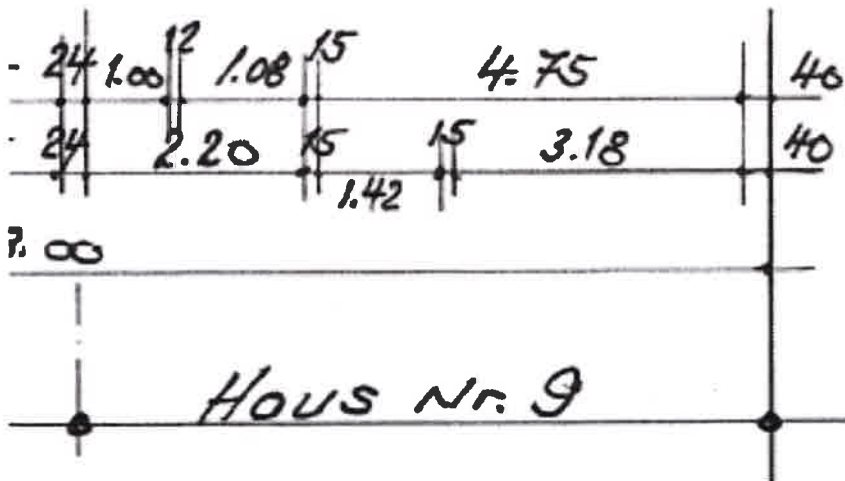 24 1.00 12 1.08 15 4.75 40
24 2.20 15 1.42 15 3.18 40
.00
Haus Nr. 9